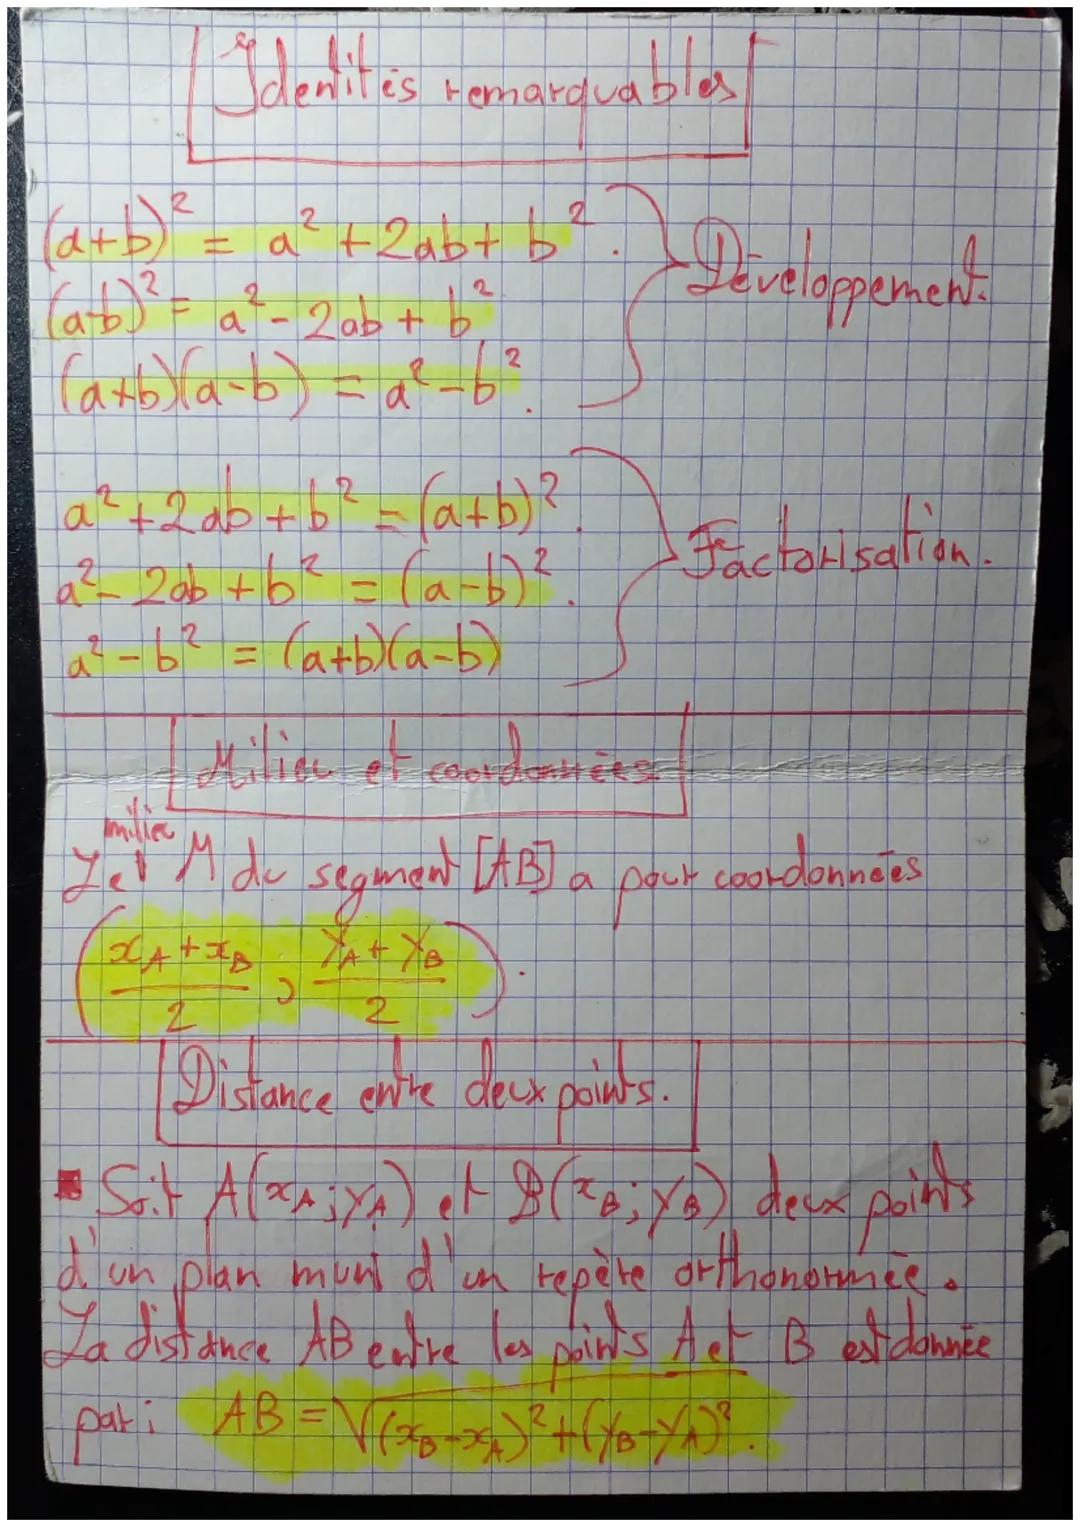 Identités remarquables
(a+b)² = a² + 2ab + b².
(a-b)² = a² - 2ab + b²
(a+b)(a-b) = a² - b².
Développement.
a² + 2ab + b² = (a+b)².
a² - 2ab + b² = (a-b)².
a² - b² = (a+b)(a-b)
Factorisation.
Milieu et coordonnées
milieu
Le M du segment [AB] a pour coordonnées
((xA + xB)/2 ; (yA + yB)/2).
Distance entre deux points.
Soit A(xA ; yA) et B(xB ; yB) deux points
d'un plan muni d'un repère orthonormée.
La distance AB entre les points A et B est donnée
par : AB = √((xB - xA)² + (yB - yA)²).